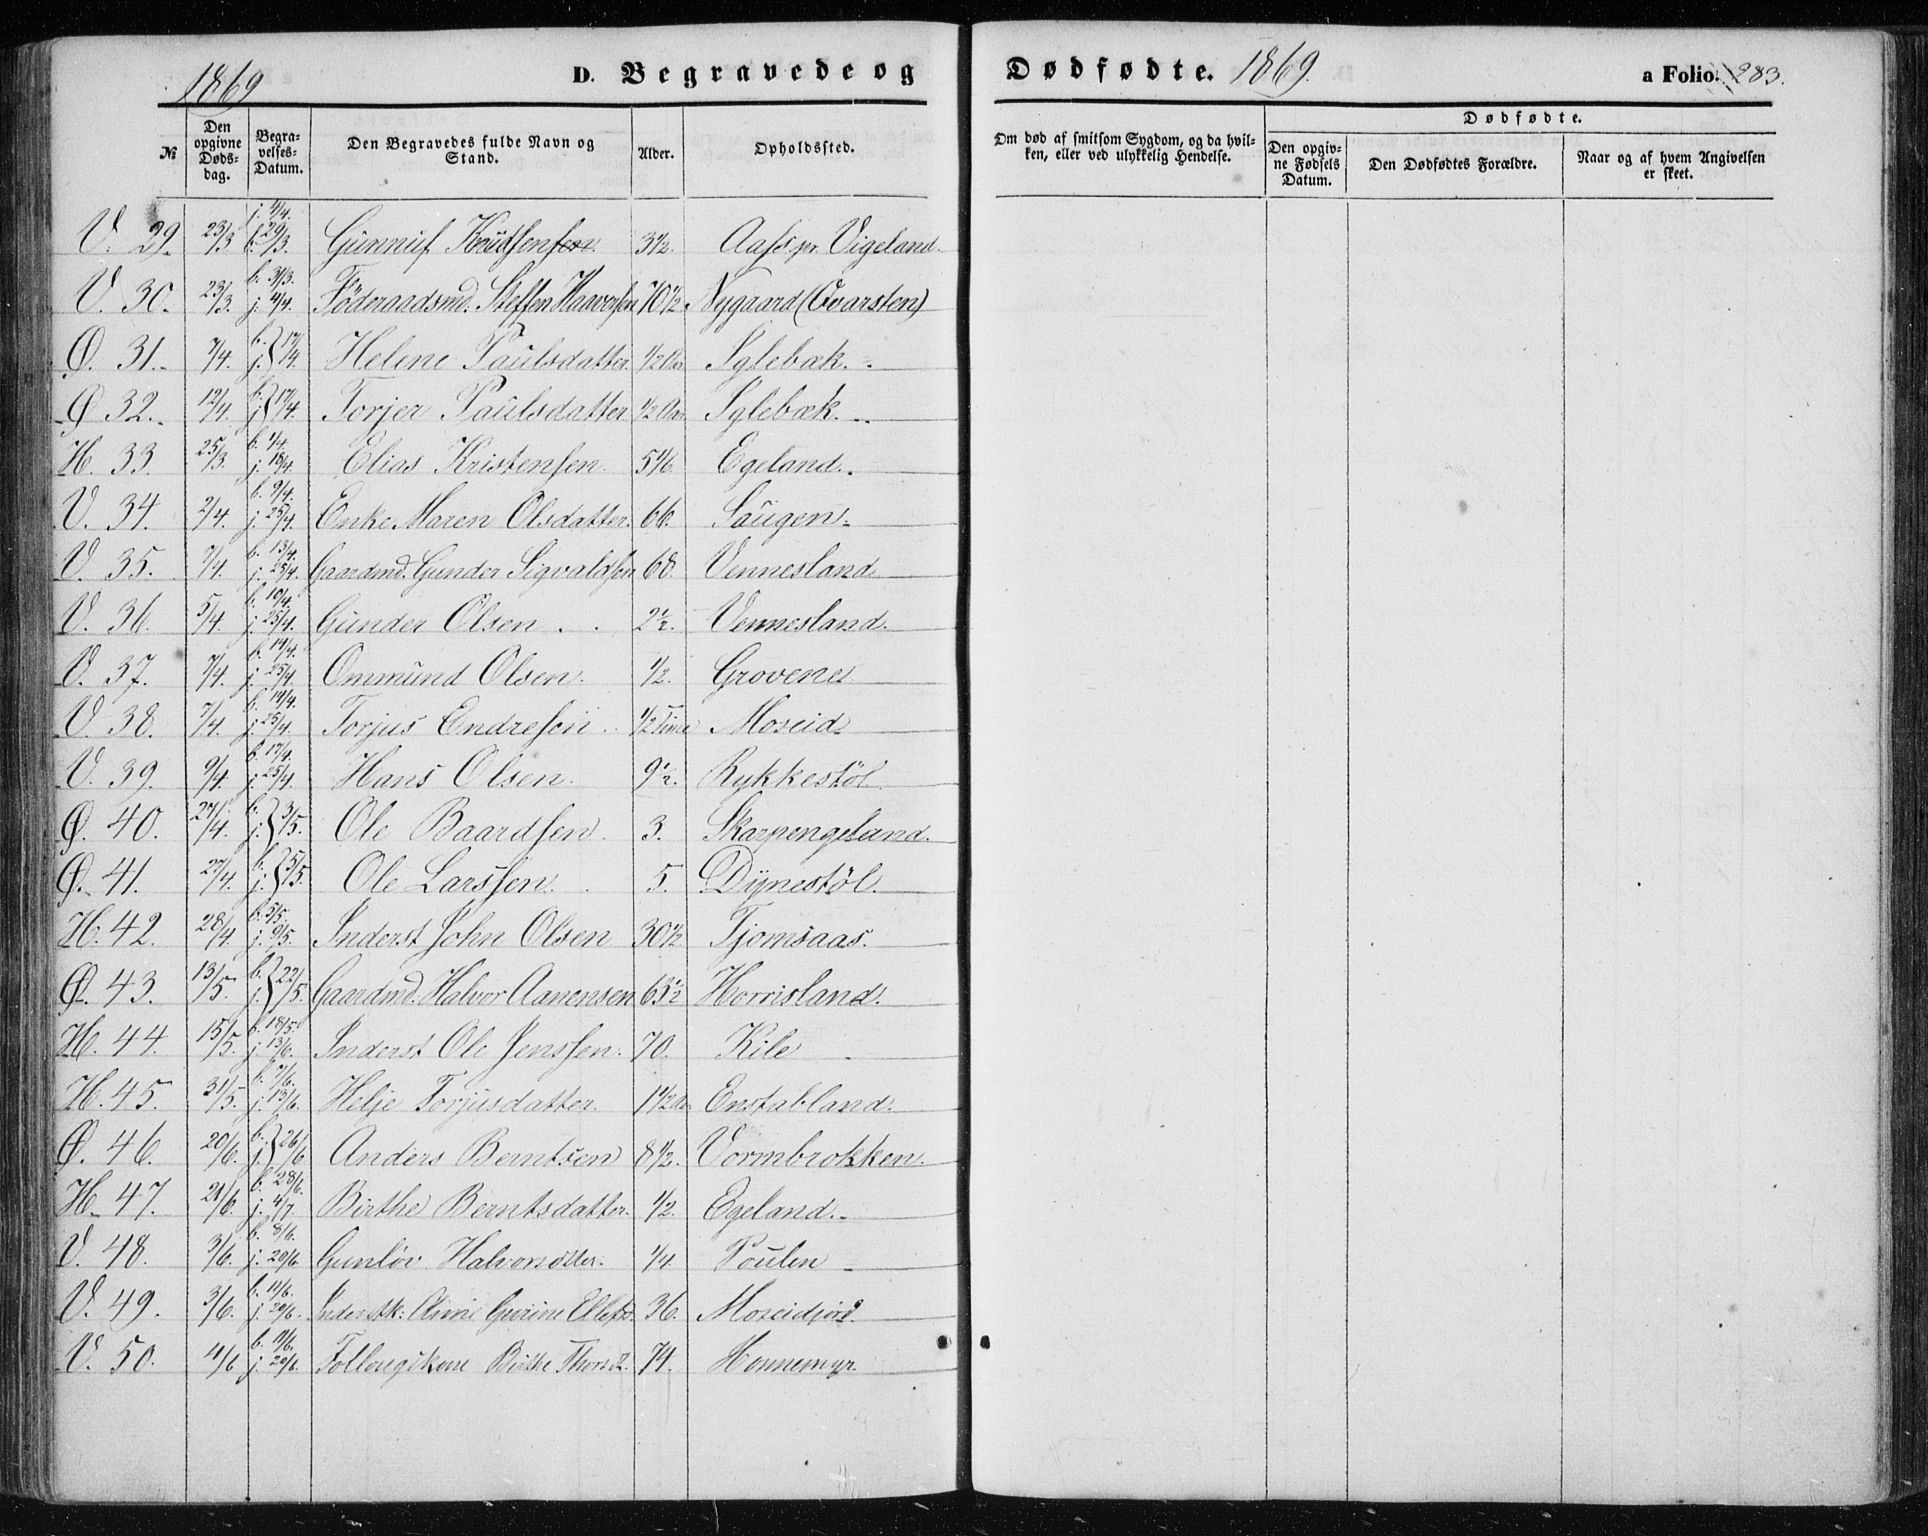 1869 D. Begravede og Dødfødte. 1869. a Folio. 283.
№ Den opgivne Døds-dag. Begra-velses-Datum. Den Begravedes fulde Navn og Stand. Alder. Opholdssted. Om død af smitsom Sygdom, og da hvil-ken, eller ved ulykkelig Hendelse. Dødfødte. Den opgiv-ne Fødsels Datum. Den Dødfødtes Forældre. Naar og af hvem Angivelsen er skeet.
V. 29. 23/3 j. 4/4. b. 29/3. Gunnuf 3 1/2. Aas pr. Vigeland.
V. 30. 23/3. b. 31/3. j. 4/4. Föderaadsmd. Steffen Haaversen 70 1/2 Nygaard (Qvarsten)
Ø. 31. 7/4. b. j. } 17/4 Helene Paulsdatter. 1/2 Aar Sglebæk.
Ø 32. 12/4. b. j. } 17/4. Torjer Paulsdatter 1/2 Aar Sglebæk.
H. 33. 25/3. b. 1/4. j. 18/4. Elias Kristensen. 5 1/6. Egeland.
V. 34. 2/4. b. 9/4. j. 25/4. Enke Maren Olsdatter. 66. Saugen
V. 35. 7/4. b. 13/4. j. 25/4. Gaardmd. Gunder Sigvaldsen 68. Vennesland
V. 36. 5/4. b. 10/4. j. 25/4. Gunder Olsen . . 2 1/2. Vennesland.
V. 37. 7/4. b. 14/4. j. 25/4. Ommund Olsen. 1/2. Grovene
V. 38. 7/4. b. 14/4. j. 25/4. Torjus Endresen . . 1/2 Time Moseid
V. 39. 9/4. b. 17/4. j. 25/4. Hans Olsen. 9 1/2. Rykkestöl
Ø. 40. 27/4. b. j. } 3/5. Ole Baardsen. 3. Skarpengeland.
Ø. 41. 27/4. b. j. } 5/5. Ole Larssen. 5. Dynestöl.
H. 42. 28/4. b. 5/5. j. 9/5. Inderst John Olsen 30 1/2 Tjomsaas.
Ø. 43. 13/5. b. j. } 22/5. Gaardmd. Halvor Aanensen 63 1/2 Horrisland.
H. 44. 15/5. b. 18/5. j. 13/6. Inderst Ole Jenssen. 70. Kile
H. 45. 31/5. b. 7/6. j. 13/6. Helje Torjusdatter. 1 1/2 Aar Enstabland.
Ø. 46. 20/6. b. j. } 26/6 Anders Berntsen 8 1/2. Vormbrokken.
H. 47. 21/6. b. 28/6. j. 4/7. Birthe Berntsdatter. 1/2. Egeland.
V. 48. 3/6. b. 8/6. j. 20/6. Gunlöv Halvorsdtter. 1/4. Poulen
V. 49. 3/6. b. 11/6. j. 20/6. Inderstk: Anne Gurine Ellefsd. 36. Moseidjord.
V. 50. 4/6 b. 11/6. j. 20/6. Birthe Thorsd. 74. Honnemyr.